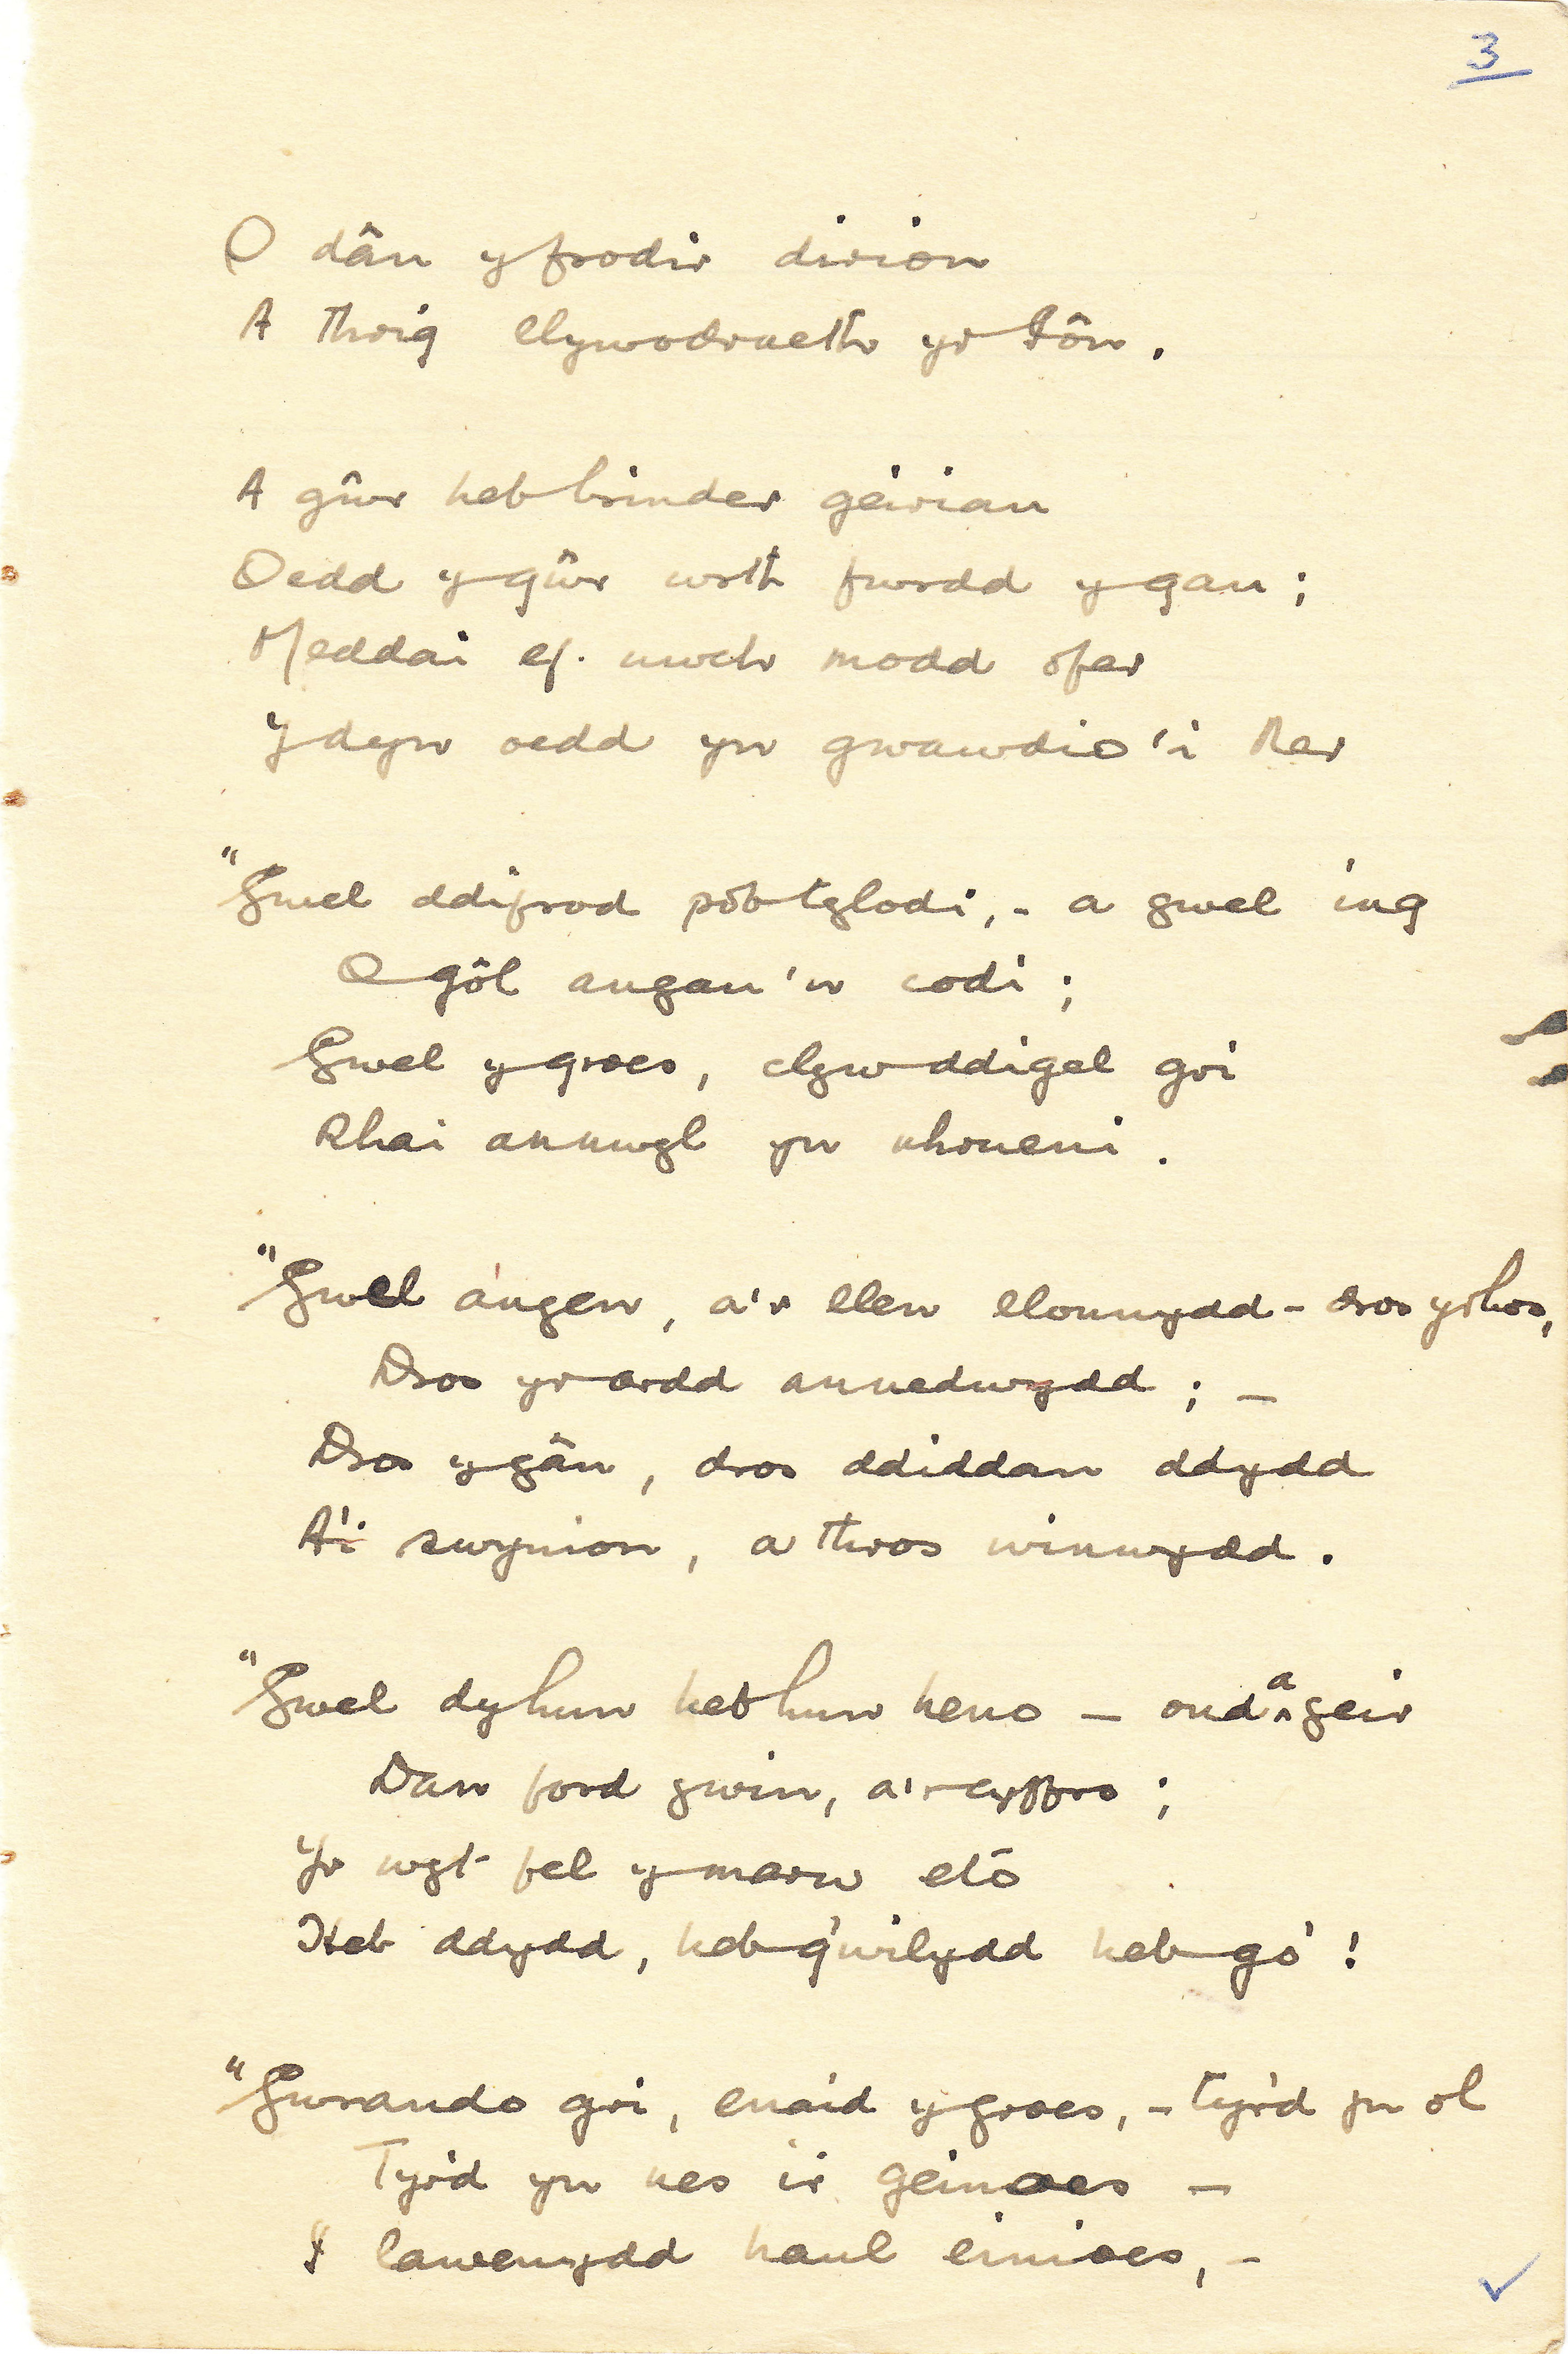 3
O dân y frodir dirion
A thrig llywodraeth yr Iôn.
A gŵr heb brinder geiriau
Oedd y gŵr wrth fwrdd y gau;
Meddai ef. uwch modd ofer
Y dyn oedd yn gwawdio'i Ner
"Gwel ddifrod pob tylodi, - a gwel ing
O gôl angau'n codi;
Gwel y groes, clyw ddigel gri
Rhai annwyl yn nhrueni.
"Gwel angen, a'r llen llonnydd - dros y rhos,
Dros yr ardd annedwydd; -
Dros y gân, dros ddiddan ddydd
A'i swynion, a thros winwydd.
"Gwel dy hun heb hun heno - ond a geir
Dan ford gwin, a'r cyffro;
Yr wyt fel y marw eto
Heb ddydd, heb g'wilydd heb go'!
"Gwrando gri, enaid y groes, - tyr'd yn ol
Tyr'd yn nes i'r geinoes -
I lawenydd haul einioes, -